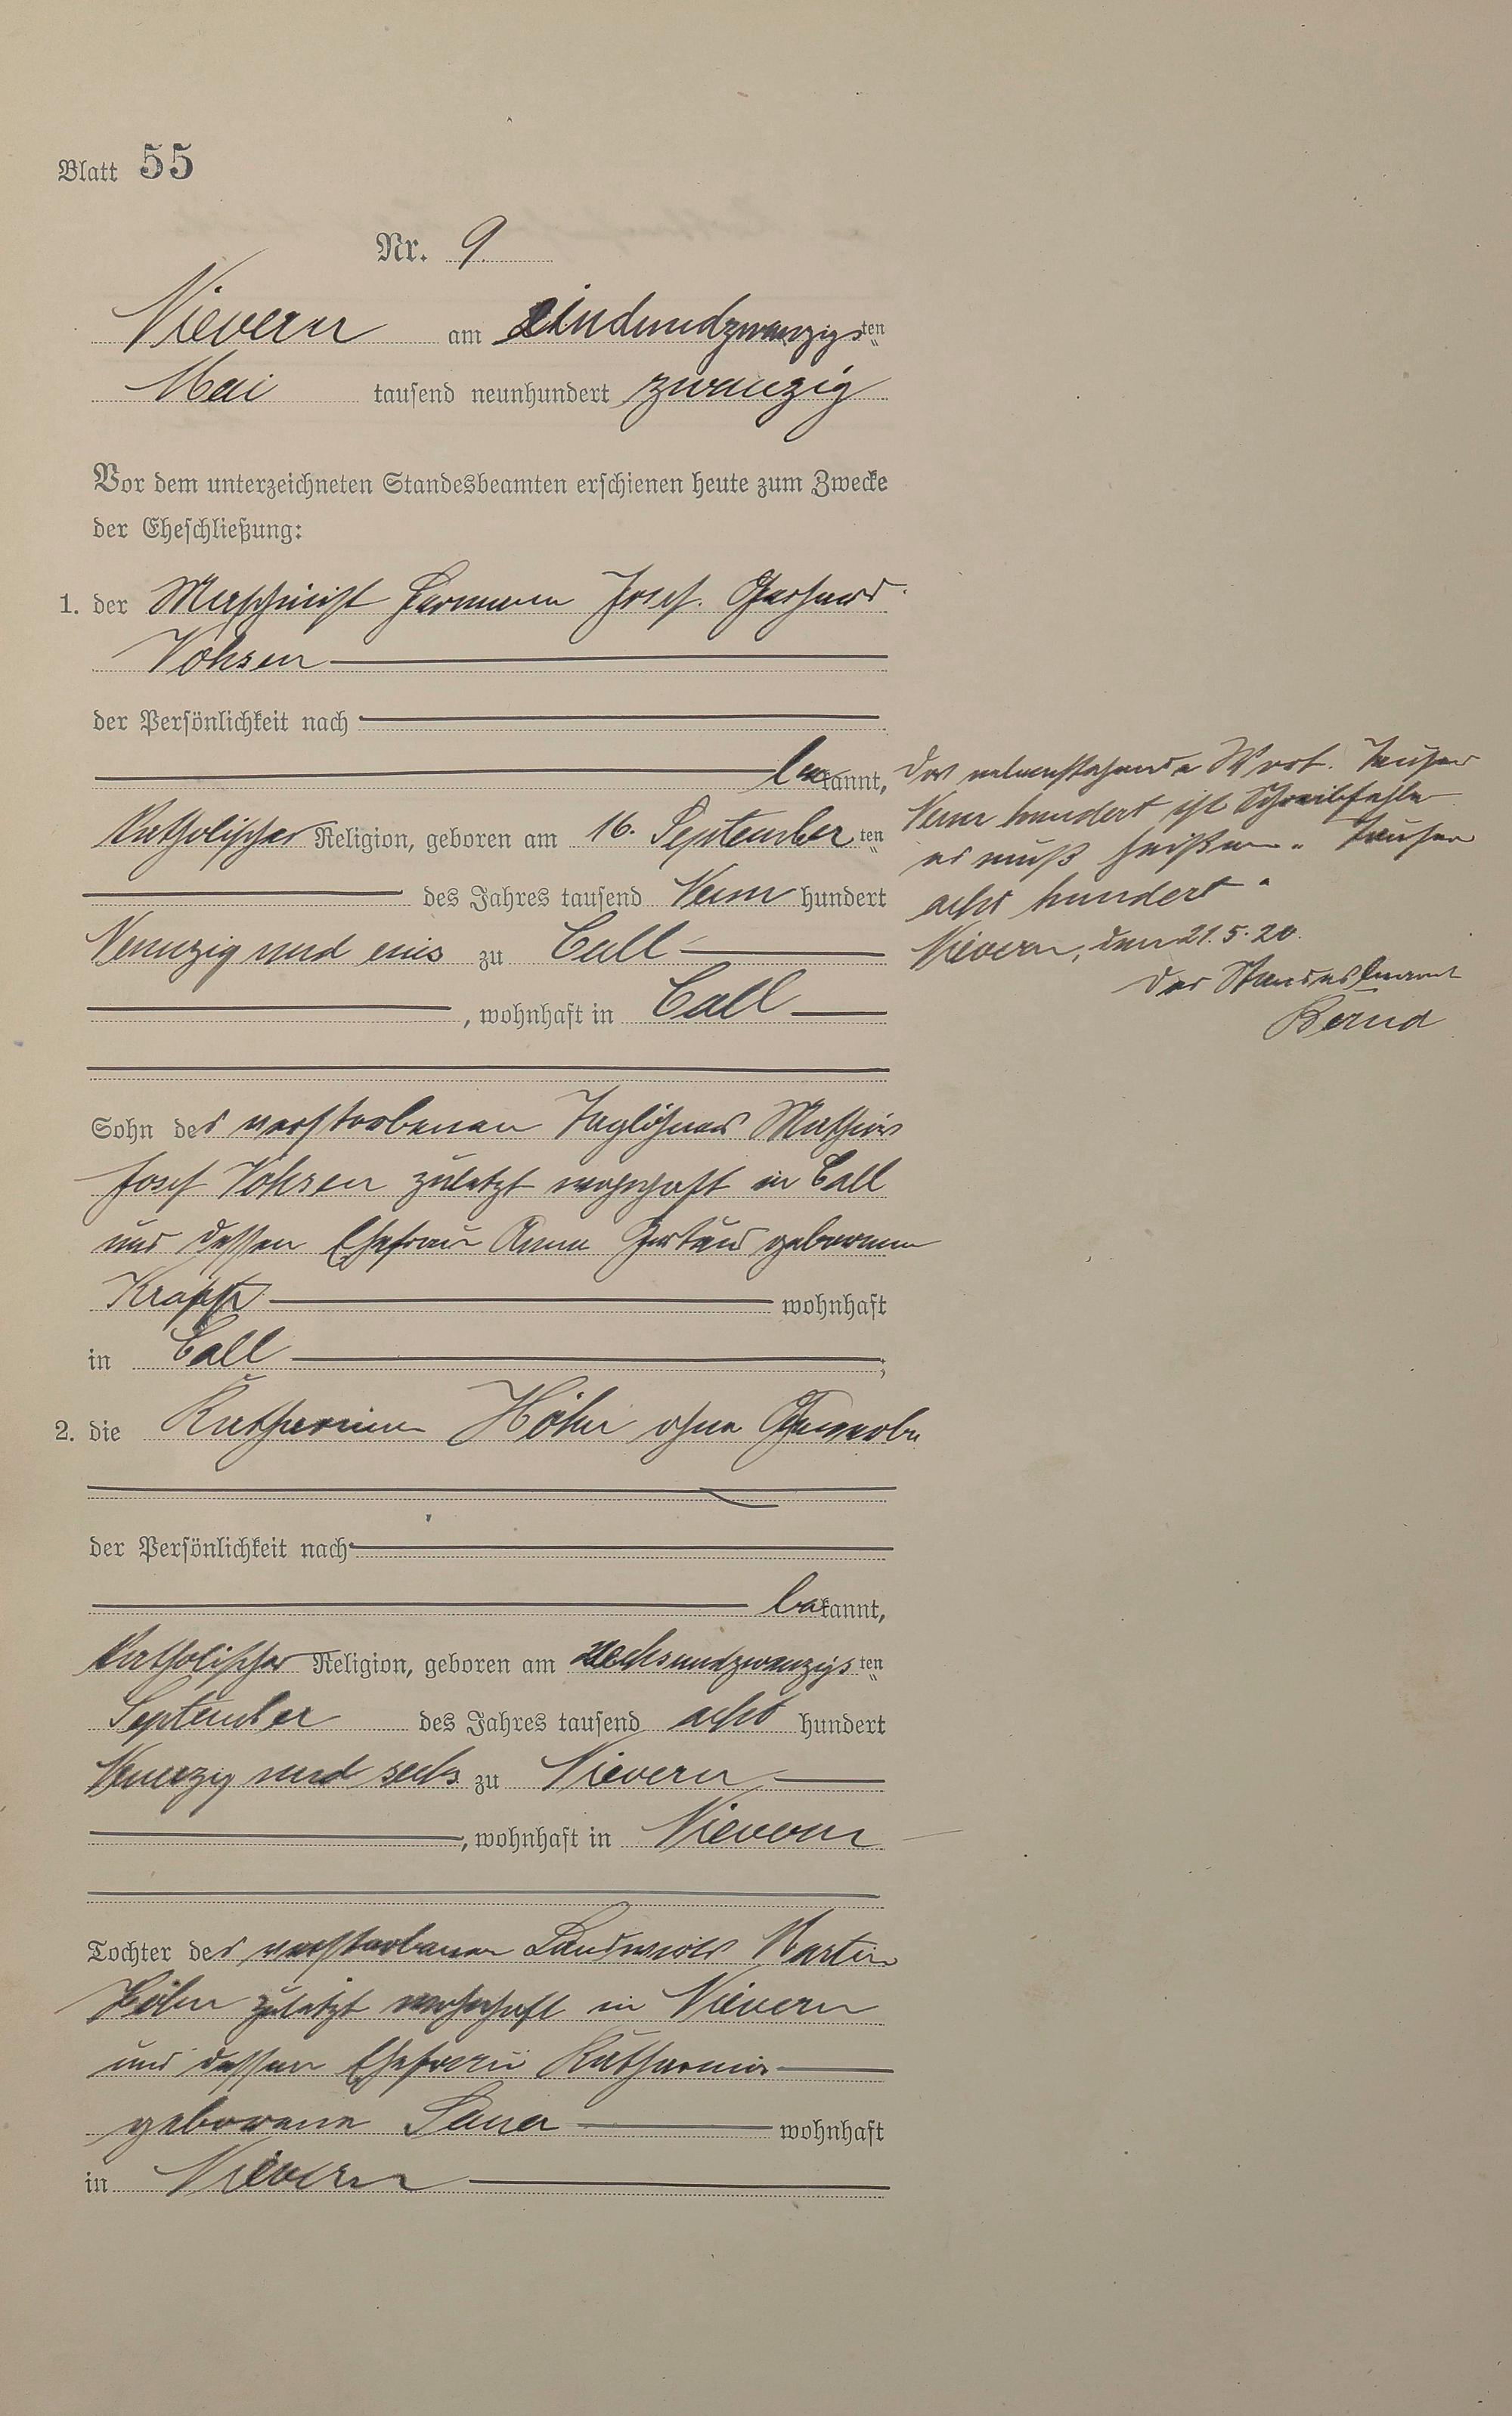 Blatt 55
Nr. 9
Nievern am einundzwanzigsten
Mai tausend neunhundert zwanzig
Vor dem unterzeichneten Standesbeamten erschienen heute zum Zwecke
der Eheschließung:
1. der Maschinist Hermann Josef Gerhard
Vohsen
der Persönlichkeit nach
bekannt,
katholischer Religion, geboren am 16. September ten
des Jahres tausend Neun hundert
Neunzig und eins zu Call
, wohnhaft in Call
Sohn des verstorbenen Taglöhners Mathias
Josef Vohsen zuletzt wohnhaft in Call
und dessen Ehefrau Anna Gertrud geborenen
wohnhaft
in Call ;
2. die Katharina Höhn ohne Gewerbe
der Persönlichkeit nach
bekannt,
katholischer Religion, geboren am sechsundzwanzigsten
September des Jahres tausend acht hundert
Neunzig und sechs zu Nievern
, wohnhaft in Nievern
Tochter des verstorbenen Landwirts Martin
Höhn zuletzt wohnhaft in Nievern
und dessen Ehefrau Katharina
geborene wohnhaft
in Nievern
Das nebenstehende Wort Tausend
Neun hundert ist Schreibfehler
es muß heißen „Tausend
acht hundert"
Nievern, den 21.5.20.
Der Standesbeamte
Bernd